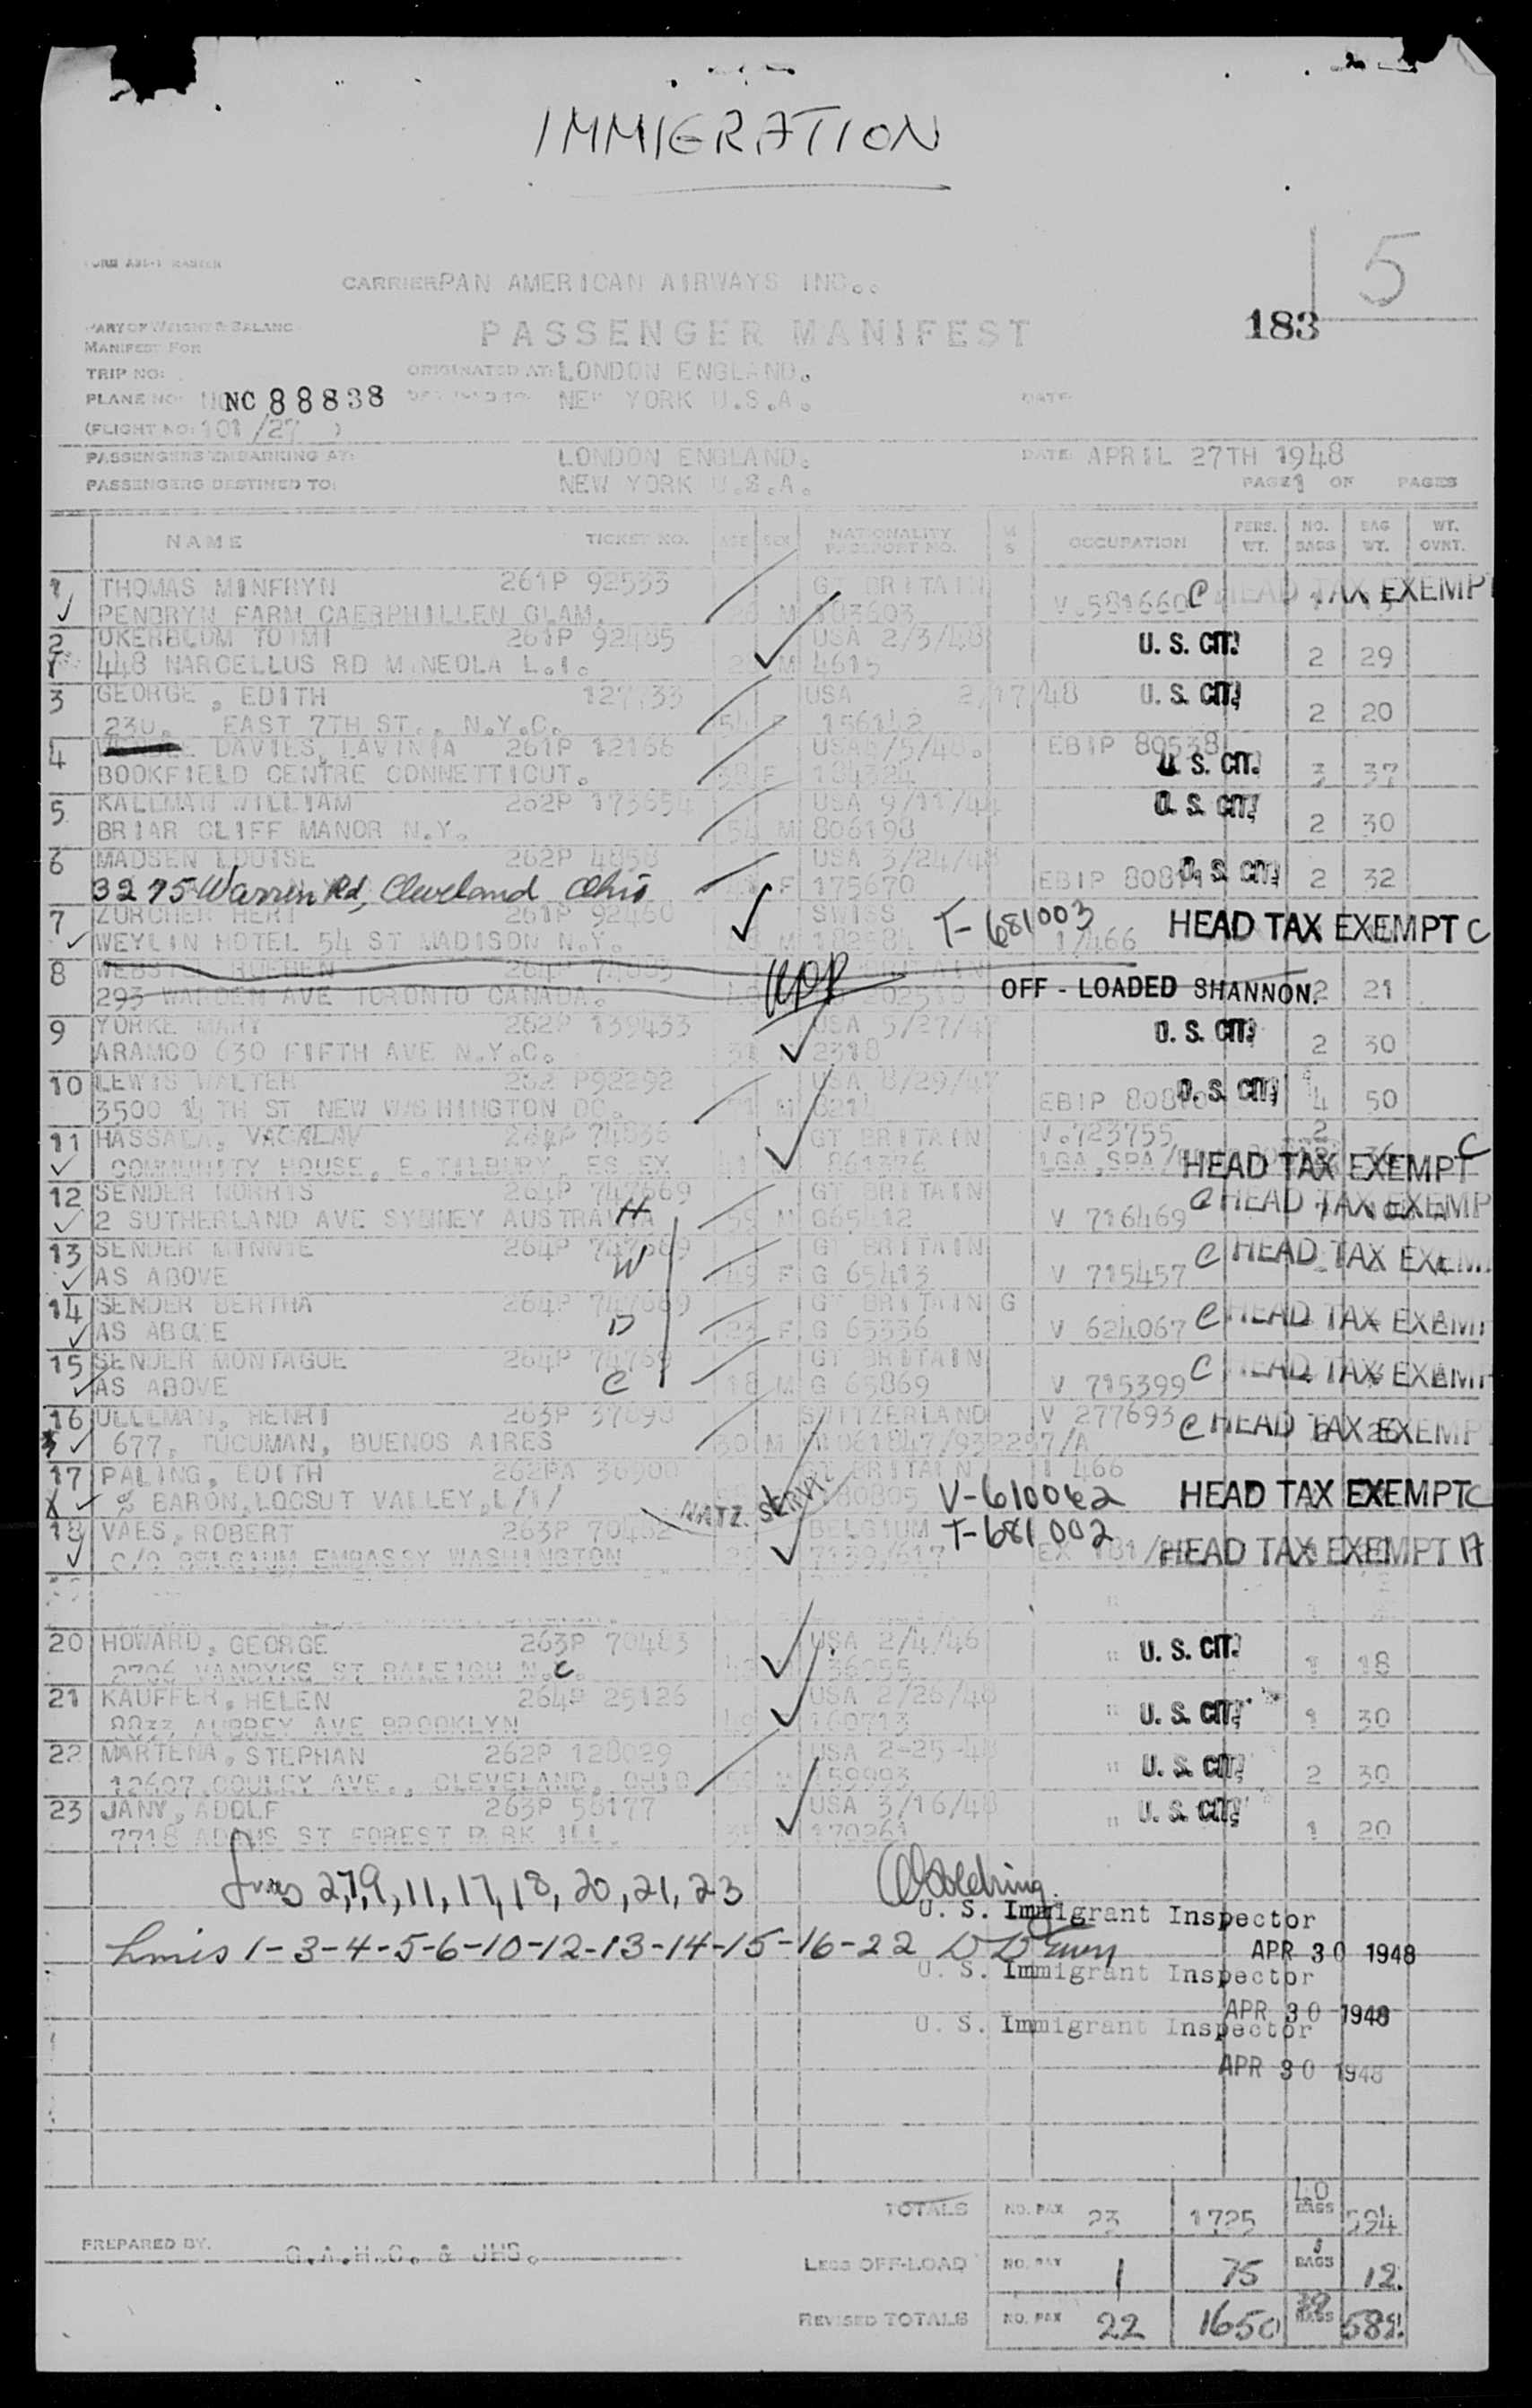 IMMIGRATION
15
183
CARRIER PAN AMERICAN AIRWAYS INC..
PASSENGER MANIFEST
MANIFEST FOR
TRIP NO:
ORIGINATED AT: LONDON ENGLAND.
PLANE NO: NC 88838 NEW YORK U.S.A. DATE
(FLIGHT NO: 101/27 )
PASSENGERS EMBARKING AT: LONDON ENGLAND. DATE APRIL 27TH 1948
PASSENGERS DESTINED TO: NEW YORK U.S.A. PAGE 1 OF PAGES
NAME TICKET NO. AGE SEX NATIONALITY PASSPORT NO. M S OCCUPATION PERS. WT. NO. BAGS BAG WT. WT. OVNT.
1 THOMAS MINFRYN 261P 92533 GT BRITAIN
PENDRYN FARM CAERPHILLEN GLAM. M 183603 V.581660 C HEAD TAX EXEMPT
2 UKERBLOM TOIMI 261P 92485 USA 2/3/48 U. S. CIT.
448 MARCELLUS RD MINEOLA L.I. M 4615 2 29
3 GEORGE, EDITH 127733 USA 2/17/48 U. S. CIT.
230. EAST 7TH ST., N.Y.C. 54 156142 2 20
4 DAVIES, LAVINIA 261P 12166 EBIP 80538
BOOKFIELD CENTRE CONNETTICUT. 38 F 184324 U. S. CIT. 3 37
5 KALLMAN WILLIAM 262P 173654 USA 9/11/44 U. S. CIT.
BRIAR CLIFF MANOR N.Y. 54 M 806198 2 30
6 MADSEN LOUISE 262P 4858 USA 3/24/48
3275 Warren Rd, Cleveland Ohio F 175670 EBIP U. S. CIT. 2 32
7 ZURCHER HERI 261P 92460 SWISS T-681003 HEAD TAX EXEMPT C
WEYLIN HOTEL 54 ST MADISON N.Y. M 1/466
8 WEBST REUBEN 264P
293 WARDEN AVE TORONTO CANADA. OFF - LOADED SHANNON. 2 21
9 YORKE MARY 262P 139433 USA 5/27/47 U. S. CIT.
ARAMCO 630 FIFTH AVE N.Y.C. 31 2318 2 30
10 LEWIS WALTER 262 P92292 USA 8/29/47 U. S. CIT.
3500 14 TH ST NEW WASHINGTON DC. M EBIP 4 50
11 HASSALA, VACALAV 264P 74836 GT BRITAIN V.723755 C
COMMUNITY HOUSE, E.TILBURY, ESSEX 41 861376 HEAD TAX EXEMPT
12 SENDER NORRIS 264P 747669 GT BRITAIN C HEAD TAX EXEMP
2 SUTHERLAND AVE SYDNEY AUSTRALIA H 59 M G65412 V 716469
13 SENDER MINNIE 264P 747669 GT BRITAIN C HEAD TAX EXEM
AS ABOVE W 49 F G 65413 V 715457
14 SENDER BERTHA 264P 747669 GT BRITAIN G C HEAD TAX EXEMP
AS ABOVE D 23 F G 65336 V 624067
15 SENDER MONTAGUE 264P 74769 GT BRITAIN C HEAD TAX EXEMP
AS ABOVE C 18 M G 65869 V 715399
16 ULLLMAN, HENRI 263P 37898 SWITZERLAND V 277693 C HEAD TAX EXEMP
677, TUCUMAN, BUENOS AIRES 30 M 1061847/932297/A
17 PALING, EDITH 262PA 36900 BRITAIN 1 466
% BARON, LOCSUT VALLEY, L/I/ NATZ. SERVICE V-610062 HEAD TAX EXEMPT C
18 VAES, ROBERT 263P 70482 BELGIUM T-681002
C/O BELGIUM EMBASSY WASHINGTON 7139/617 HEAD TAX EXEMPT A
20 HOWARD, GEORGE 263P 70483 USA 2/4/46 " U. S. CIT.
2706 VANDYKE ST RALEIGH N.C. 36255 1 18
21 KAUFFER, HELEN 264P 25126 USA 2/26/48 " U. S. CIT.
AUBREY AVE BROOKLYN 49 160713 1 30
22 MARTENA, STEPHAN 262P 128029 USA 2-25-48 " U. S. CIT.
12607 COULEY AVE., CLEVELAND, OHIO M 159993 2 30
23 JANY, ADOLF 263P 56177 USA 3/16/48 " U. S. CIT.
7718 ADAMS ST FOREST PARK ILL. 170261 1 20
Lines 2,7,9,11,17,18,20,21,23
U. S. Immigrant Inspector
Lines 1-3-4-5-6-10-12-13-14-15-16-22 APR 30 1948
U. S. Immigrant Inspector
APR 30 1948
U. S. Immigrant Inspector
APR 30 1948
TOTALS NO. PAX 23 1725 40 BAGS 594
PREPARED BY. G.A.H.C. & JHS.
LESS OFF-LOAD NO. PAX 1 75 BAGS 12.
REVISED TOTALS NO. PAX 22 1650 39 BAGS 582.